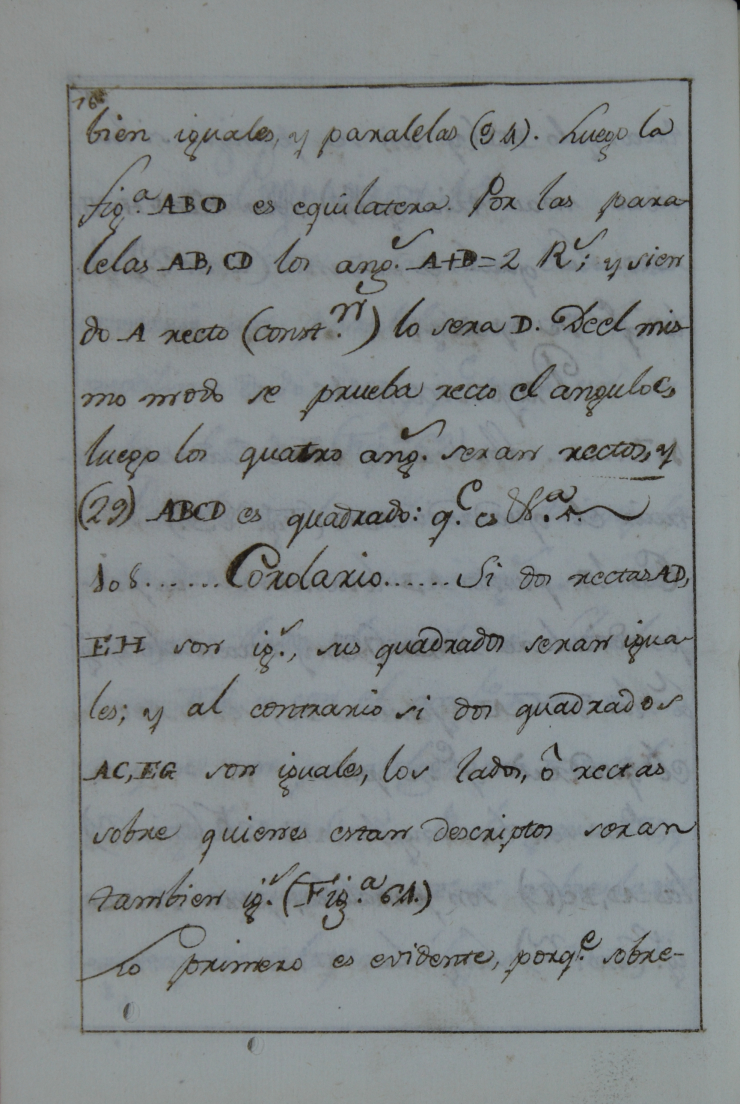 76
bien iguales, y paralelas (34). Luego la
fig.ª ABCD es equilatera. Por las para-
lelas AB, CD los ang.s A+D=2 R.s; y sien
do A recto (const.n) lo sera D. Del mis-
mo modo se prueba recto el angulo C,
luego los quatro ang.s seran rectos, y
(29) ABCD es quadrado: q.e es
108......Corolario......Si dos rectas AD,
EH son ig.s, sus quadrados seran igua-
les; y al contrario si dos quadrados
AC, EG son iguales, los lados, ô rectas
sobre quienes estan descriptos seran
tambien ig.s (Fig.ª 64.)
Lo primero es evidente, porq.e sobre-